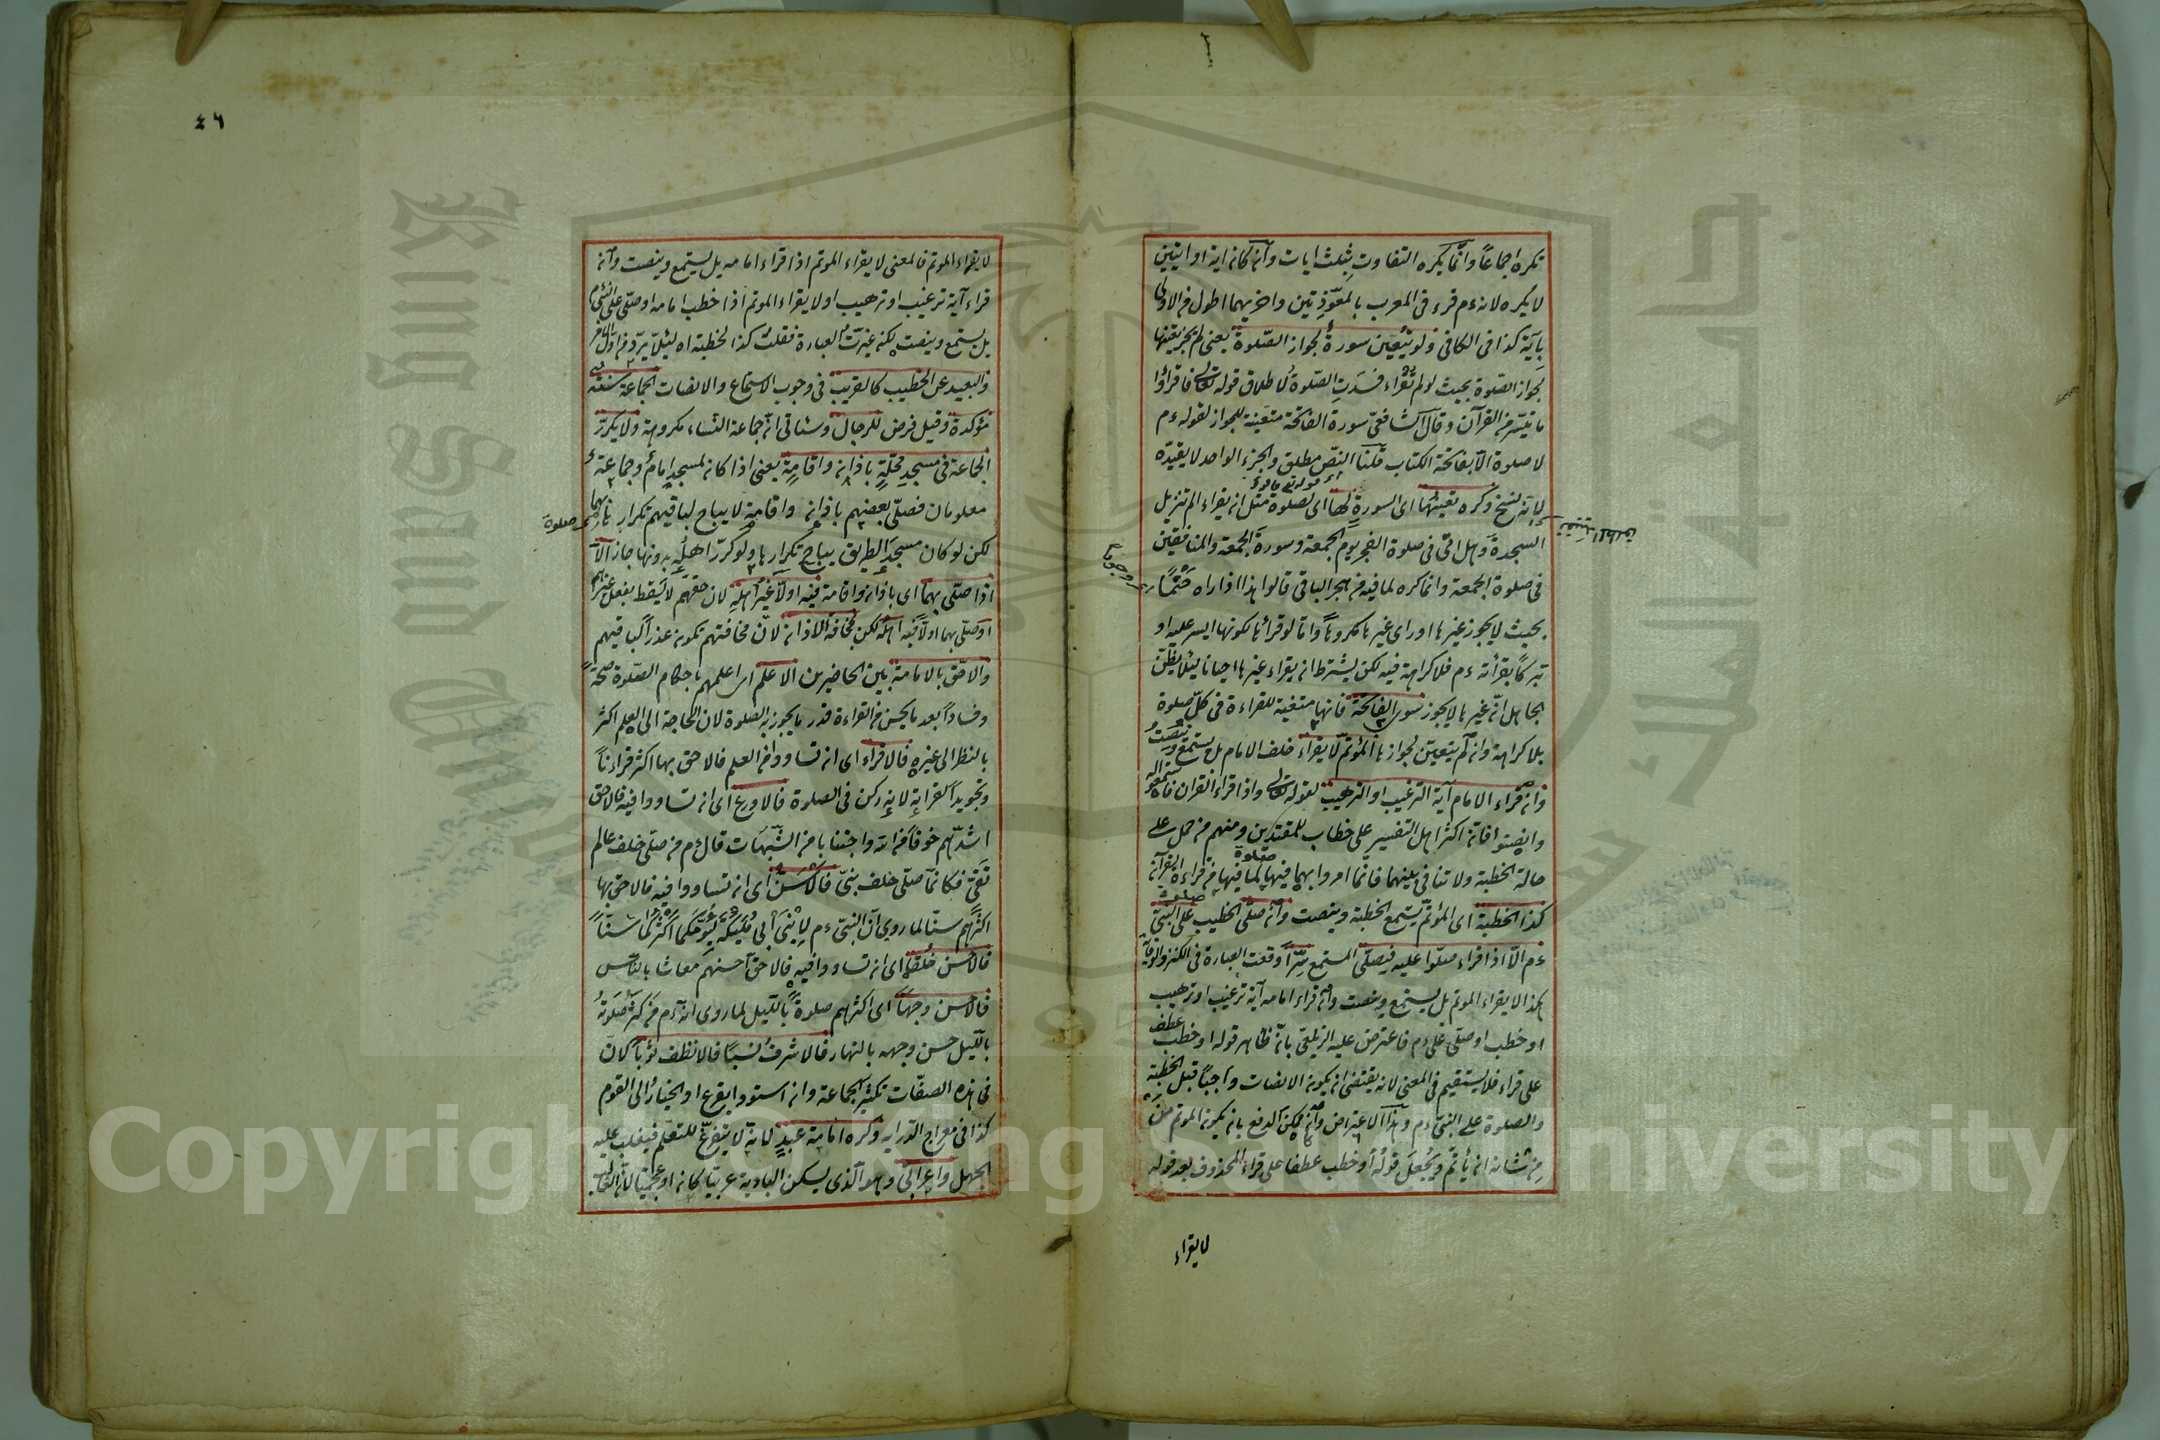 تكره اجماعاً وانما يكره التفاوت بثلث ايات وان كان اية او ايتين
لا يكره لانه ءم قرء فى المغرب بالمعوّذتين واخريهما اطول من الاولى
بآية كذا فى الكافى ولم يتعين سورة لجواز الصّلوة يعنى لم يجز تعيّنها
لجواز الصّلوة بحيث لو لم تقراء فسدت الصّلوة لاطلاق قوله تعالى فاقرؤا
ما تيسّر من القرآن وقال الشافعى سورة الفاتحة متعيّنة للجواز لقوله ءم
لا صلوة الا بفاتحة الكتاب قلنا النصّ مطلق والجزء الواحد لا يقيّده
لانه نسخ وكره تعيينها اى السورة لها اى لصلوة مثل ان يقراء الم تنزيل
السجدة وهل اتى فى صلوة الفجر يوم الجمعة وسورة الجمعة والمنافقين
فى صلوة الجمعة وانما كره لما فيه من هجر الباقى قالوا هذا اذا راه حتماً
بحيث لا يجوز غيرها او راى غيرها مكروهاً واما لو قرأها لكونها ايسر عليه او
تبركاً بقرأته ءم فلا كراهة فيه لكن يشترط ان يقراء غيرها احيانا لئلا يظنّ
الجاهل انّ غيرها لا يجوز سوى الفاتحة فانها متعيّنة للقراءة فى كل صلوة
بلا كراهة وان لم يتعيّن لجوازها المؤتمّ لا يقراء خلف الامام بل يستمع وينصت
وان قراء الامام آية الترغيب او الترهيب لقوله تعالى واذا قراء القران فاستمعوا له
وانصتوا فانّ اكثر اهل التفسير على خطاب للمقتدين ومنهم من حمل على
حالة الخطبة ولا تنافى بينهما فانّما امروا بهما فيها لما فيها من قراءة القرآن
كذا الخطبة اى المؤتمّ يستمع الخطبة وينصت وان صلّى الخطيب على النبىّ
ءم الا اذا قراء صلّوا عليه فيصلّى المستمع سرّاً وقعت العبارة فى الكنز والوقاية
هكذا لا يقراء الموتم بل يستمع وينصت وان قراء امامه آية ترغيب او ترهيب
او خطب او صلّى على ءم فاعترض عليه الزيلعى بانّ ظاهر قوله او خطب عطف
على قراء فلا يستقيم فى المعنى لانه يقتضى ان يكون الانصات واجباً قبل الخطبة
والصلوة على النبىّ ءم وهذا الاعتراض وان امكن الدفع بان يكون الموتم من
من شانه ان يأتمّ ويجعل قوله او خطب عطفا على قراء المحذوف بعد قوله
لا يقراء
٤٦
لا يقراء الموتم فالمعنى لا يقراء الموتم اذا قراء امامه بل يستمع وينصت وان
قراء آية ترغيب او ترهيب او لا يقراء الموتم اذا خطب امامه او صلّى على النبى ءم
بل يستمع وينصت لكنه غيّرت العبارة فقلت كذا الخطبة اه لئلا يرد من اوّل الامر
والبعيد عن الخطيب كالقريب فى وجوب الاستماع والانصات الجماعة سنّة
مؤكدة وقيل فرض للرجال وسياتى انّ جماعة النساء مكروهة ولا يكرّر
الجماعة فى مسجد محلّة باذان واقامة يعنى اذا كان لمسجد امام وجماعة
معلومان فصلّى بعضهم باذان واقامة لا يباح لباقيهم تكرارها بهما
لكن لو كان مسجد الطريق يباح تكرارها ولو كرّر اهله بدونها جاز الا
اذا صلّى بهما اى باذان واقامة فيه اولاً غير اهله لان حقهم لا يسقط بفعل غيرهم
او صلّى بها اولاً فيه اهله لكن بمخافة الاذان لانّ مخافتهم تكون عذراً لباقيهم
والاحق بالامامة بين الحاضرين الاعلم اى اعلمهم باحكام الصّلوة صحّة
وفساداً بعد ما يحسن من القراءة قدر ما يجوز به الصلوة لان الحاجة الى العلم اكثر
بالنظر الى غيره فالاقراء اى ان تساووا فى العلم فالاحق بها اكثر قرآناً
وتجويداً لقراءته لانه ركن فى الصلوة فالاورع اى ان تساووا فيه فالاحق
اشدّهم خوفاً من الله واجتنابا من الشّبهات قال ءم من صلّى خلف عالم
تقىّ فكانما صلّى خلف نبىّ فالاسنّ اى ان تساووا فيه فالاحق بها
اكثرهم سنّا لما روى ان النبىّ ءم لابنى ابى مليكة ليؤمّكما اكثركما سنّاً
فالاحسن خلقاً اى ان تساووا فيه فالاحق احسنهم معاشا بالناس
فالاحسن وجهاً اى اكثرهم صلوة بالليل لما روى انه ءم من كثر صلوته
بالليل حسن وجهه بالنهار فالاشرف نسبًا فالانظف ثوباً لان
فى هذه الصفات تكثير الجماعة وان استووا يقرع او الخيار الى القوم
كذا فى معراج الدراية وكره امامة عبد لانه لا يتفرّغ للتعلّم فيغلب عليه
الجهل واعرابى وهو الذى يسكن البادية عربيّا كان او عجميّا لانّ الغالب
Copyright © King Saud University